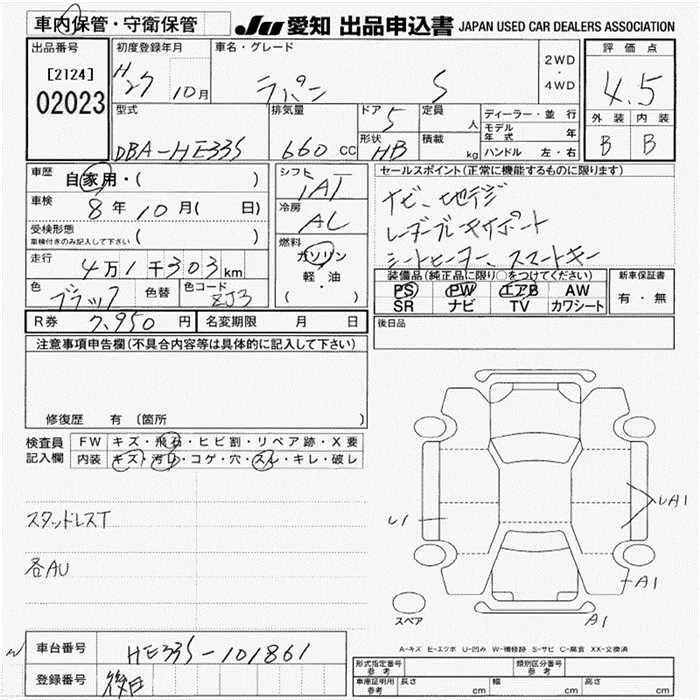 車内保管・守衛保管
JU 愛知 出品申込書 JAPAN USED CAR DEALERS ASSOCIATION
出品番号
[2124]
02023
初度登録年月
H27 10月
車名・グレード
ラパン S
2WD・4WD
評価点
4.5
外装 内装
B B
型式
DBA-HE33S
排気量
660 CC
ドア
5
形状
HB
定員 人
積載 kg
ディーラー・並行
モデル年式 年
ハンドル 左・右
車歴 自家用・( )
車検 8年10月( 日)
受検形態
車検付きのみ記入して下さい ( )
走行 4万1千303km
色 ブラック 色替 色コード ZJ3
シフト
IAT
冷房
AC
燃料
ガソリン
軽・油
( )
セールスポイント(正常に機能するものに限ります)
ナビ、地デジ
レーダーブレーキサポート
シートヒーター、スマートキー
装備品(純正品に限り○をつけてください)
PS PW エアB AW
SR ナビ TV カワシート
新車保証書
有・無
R券 7,950円 名変期限 月 日
後日品
注意事項申告欄(不具合内容等は具体的に記入して下さい)
修復歴 有〔箇所 〕
検査員記入欄
FW キズ・飛石・ヒビ割・リペア跡・X要
内装 キズ・汚れ・コゲ・穴・スレ・キレ・破レ
スタッドレスT
各AU
U1
UA1
A1
A1
スペア
A-キズ E-エクボ U-凹み W-補修跡 S-サビ C-腐食 XX-交換済
車台番号 HE33S-101861
登録番号 後日
形式指定番号 参考
類別区分番号 参考
車庫証明用 参考 長さ cm 幅 cm 高さ cm